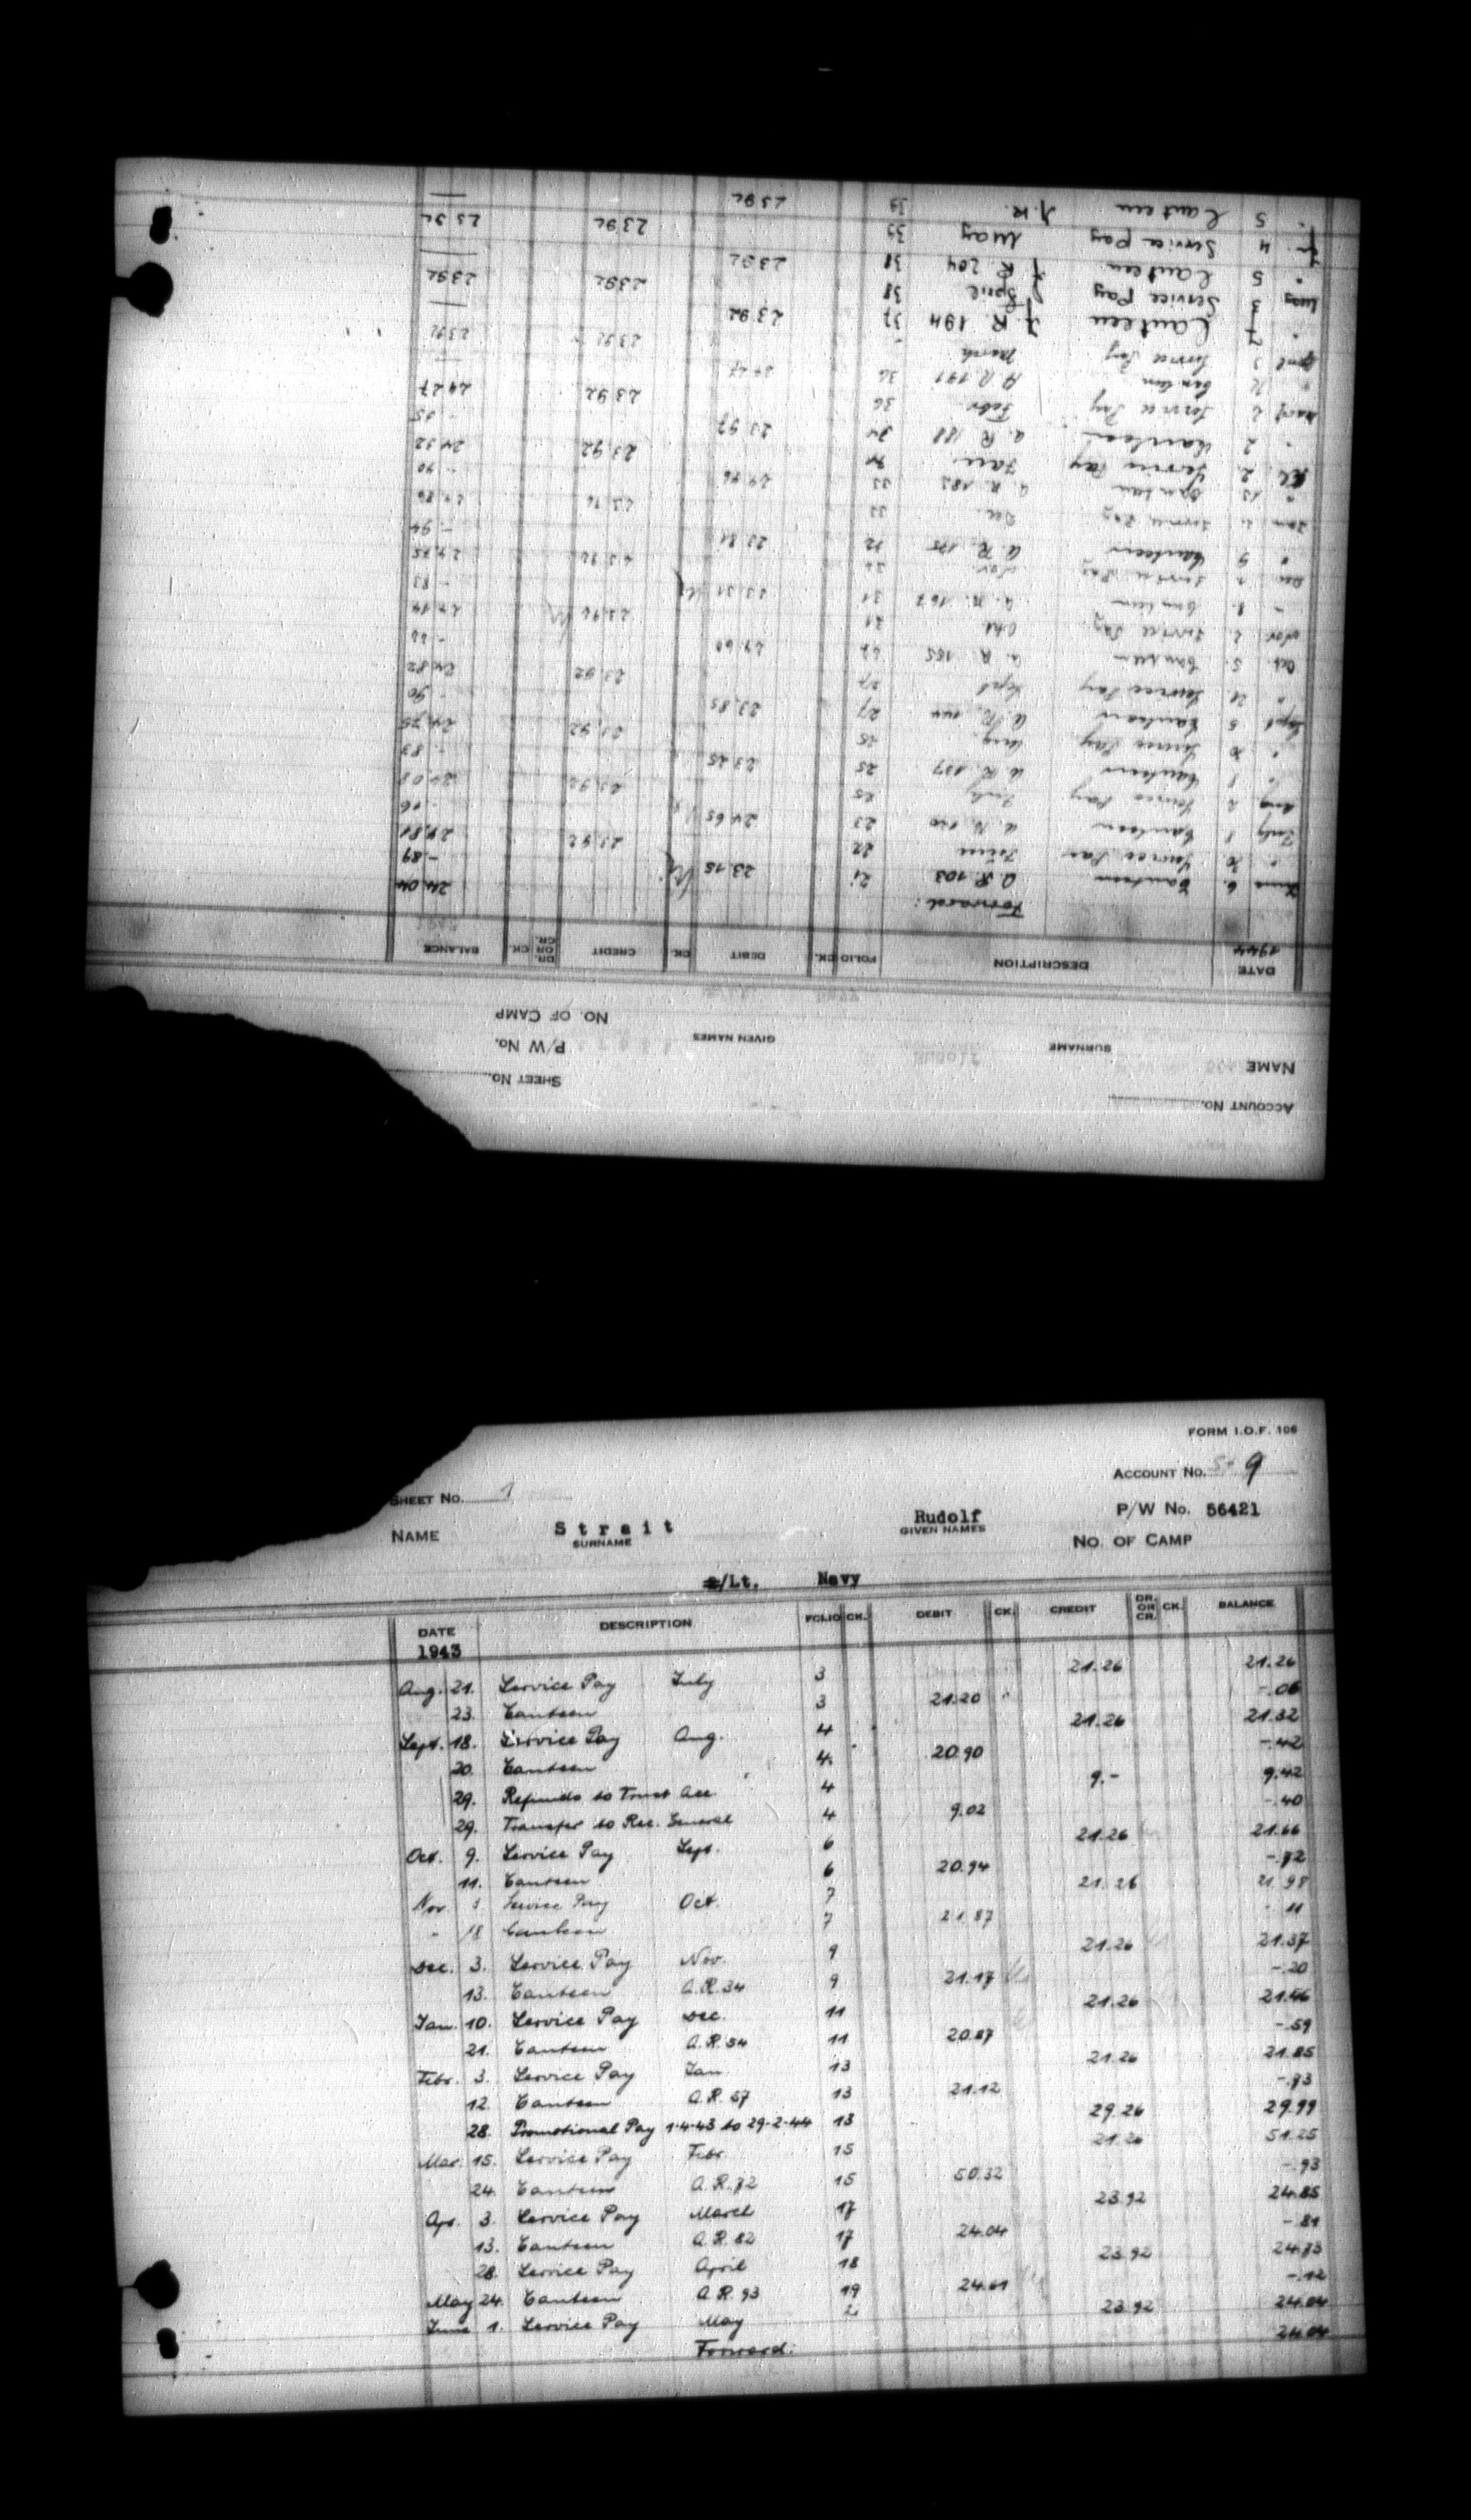 FORM I.O.F. 106
ACCOUNT No. 9
SHEET No. 1
P/W No. 56421
NAME Strait Rudolf
SURNAME GIVEN NAMES
NO. OF CAMP
/Lt. Navy
DATE DESCRIPTION FOLIO CK. DEBIT CK. CREDIT DR. OR CR. CK. BALANCE
1943
Aug. 21. Service Pay July 3 21.26 21.26
23. Canteen 3 21.20 -.06
Sept. 18. Service Pay Aug. 4 21.26 21.32
20. Canteen 4. 20.90 -.42
29. Refunds to Trust Acc 4 9.- 9.42
29. Transfer to Rec. General 4 9.02 -.40
Oct. 9. Service Pay Sept. 6 21.26 21.66
11. Canteen 6 20.94 -.72
Nov. Service Pay Oct. 7 21.26 21.98
" 18 Canteen 7 21.87 -.11
Dec. 3. Service Pay Nov. 9 21.26 21.37
13. Canteen A.R.34 9 21.17 -.20
Jan. 10. Service Pay Dec. 11 21.26 21.46
21. Canteen A.R.54 11 20.87 -.59
Febr. 3. Service Pay Jan. 13 21.26 21.85
12. Canteen A.R.57 13 21.12 -.73
28. Promotional Pay 1-4-43 to 29-2-44 13 29.26 29.99
Mar. 15. Service Pay Febr. 15 21.26 51.25
24. Canteen A.R.72 15 50.32 -.93
Apr. 3. Service Pay March 17 23.92 24.85
13. Canteen A.R.82 17 24.04 -.81
28. Service Pay April 18 23.92 24.73
May 24. Canteen A.R.93 19 24.61 -.12
June 1. Service Pay May 23.92 24.04
Forward: 24.04
ACCOUNT No.
SHEET No.
NAME
SURNAME GIVEN NAMES
P/W No.
NO. OF CAMP
DATE DESCRIPTION FOLIO CK. DEBIT CK. CREDIT DR. OR CR. CK. BALANCE
1944
Forward: 24.04
June 6. Canteen A.R.103 21 23.15 -.89
" 30 Service Pay June 22 23.92 24.81
July Canteen 23 24.65 -.16
Aug Service Pay July 25 23.92 24.08
" Canteen A.R.137 25 23.25 -.83
" 30 Service Pay Aug. 25 23.92 24.75
Sept 5 Canteen A.R. 27 23.85 -.90
" Service Pay Sept 27 23.92 24.82
Oct 5. Canteen A.R. 155
Nov 2. Service Pay Oct. 31 23.92 24.14
" Canteen A.R. 167 31 23.31 -.83
Dec Service Pay Nov 23.92 24.75
" 9 Canteen A.R. 175 32 23.81 -.94
Jan Service Pay Dec. 33 23.92 24.86
" 15 Canteen A.R. 33 -.40
Feb. 2 Service Pay Jan. 34 23.92 24.32
" 2 Canteen A.R. 188 34 23.97 -.35
March 2 Service Pay Febr. 36 23.92 24.27
" Canteen A.R.191 36 24.27
April 3 Service Pay March 23.92 23.92
" 7 Canteen J.R. 194 37 23.92
May 3 Service Pay April 38 23.92 23.92
" 5 Canteen J.R. 204 38 23.92
4 Service Pay May 39 23.92 23.92
" 5 Canteen J.R. 39 23.92